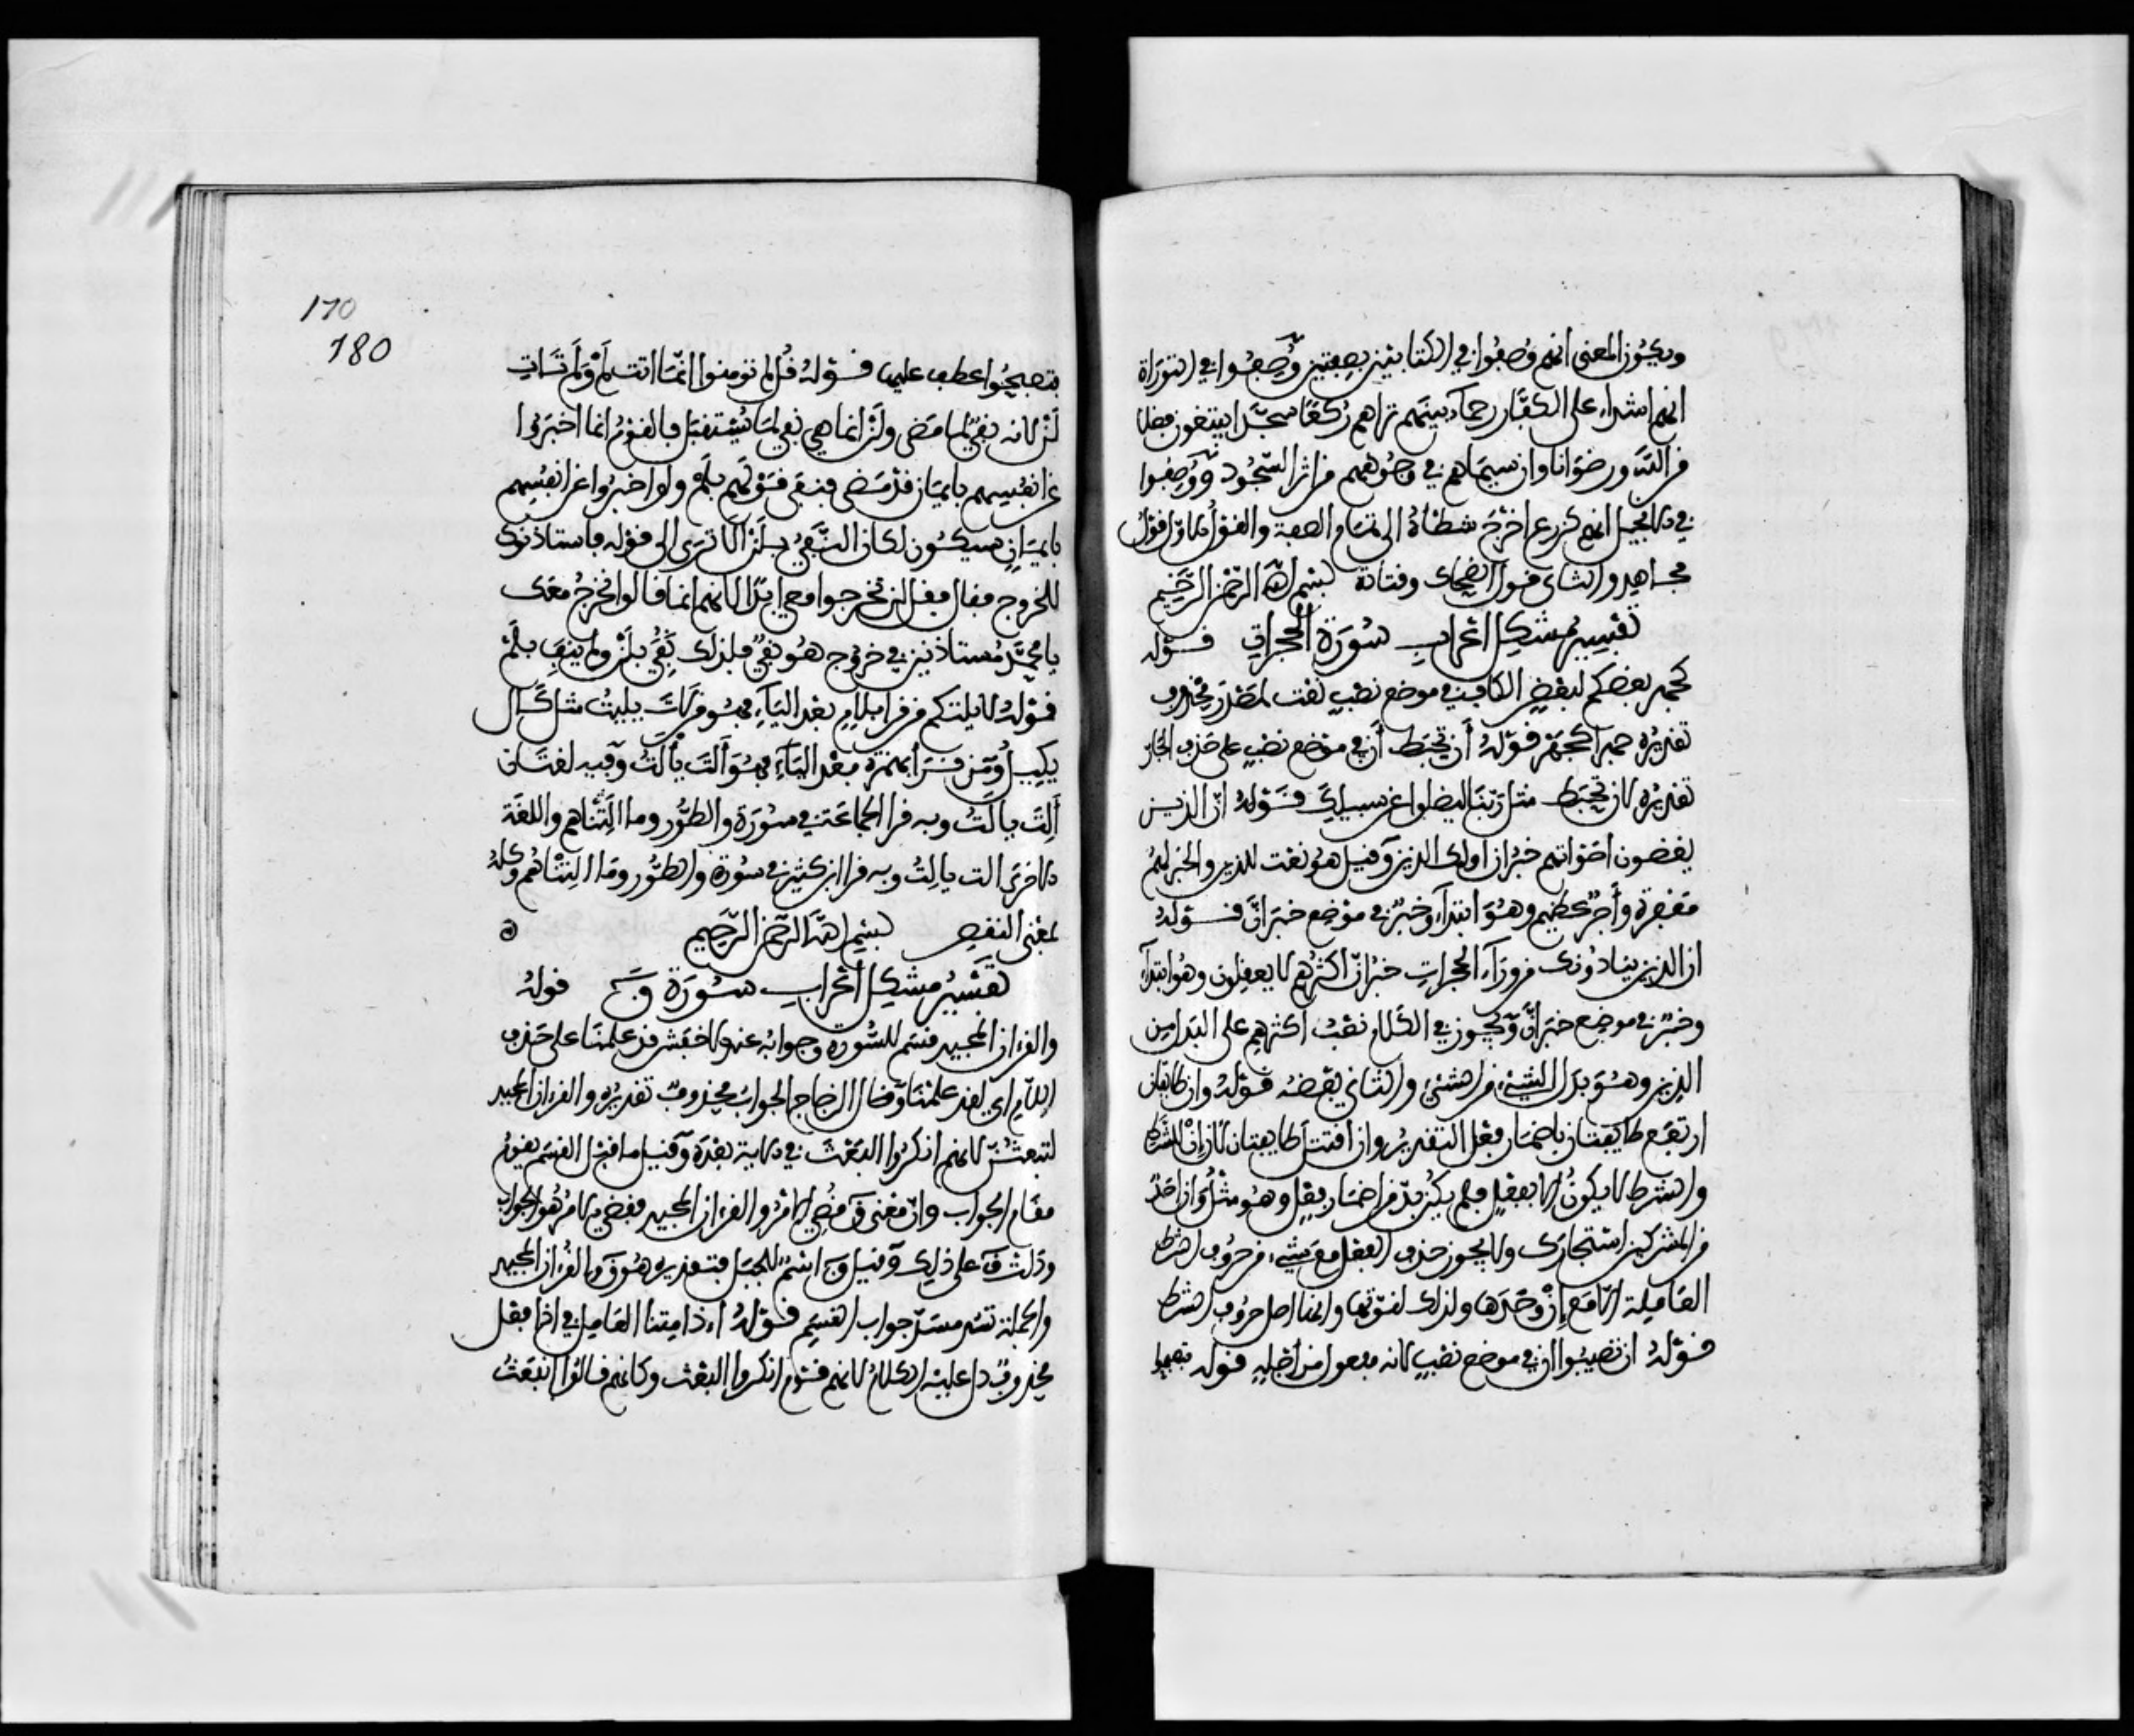 ويكون المعنى انهم وصفوا في الكتابين بصفتين وصفوا في التوراة
انهم اشداء على الكفار رحماء بينهم تراهم ركعا سجدا يبتغون فضلا
من الله ورضوانا وان سيماهم في وجوههم من اثر السجود ووصفوا
في الانجيل انهم كزرع اخرج شطئه الى تمام الصفة والقول الاول قول
مجاهد والثاني قول الضحاك وقتادة بسم الله الرحمن الرحيم
تفسير مشكل اعراب سورة الحجرات قوله
كجهر بعضكم لبعض الكاف في موضع نصب نعت لمصدر محذوف
تقديره جهرا كجهر قوله أن تحبط أن في موضع نصب على حذف الجار
تقديره لان تحبط مثل ربنا ليضلوا عن سبيلك قوله ان الذين
يغضون اصواتهم خبر ان اولئك الذين وقيل هو نعت للذين والخبر لهم
مغفرة وأجر عظيم وهو ابتداء وخبر في موضع خبر ان قوله
ان الذين ينادونك من وراء الحجرات خبر ان اكثرهم لا يعقلون وهو ابتداء
وخبر في موضع خبر ان ويجوز في الكلام نصب اكثرهم على البدل من
الذين وهو بدل الشيء من الشيء والثاني بعضه قوله وان طائفتان
ارتفع طايفتان باضمار فعل التقدير وان اقتتل طايفتان لان إن للشرط
والشرط لا يكون الا بفعل فلم يكن بد من اضمار فعل وهو مثل وان احد
من المشركين استجارك ولا يجوز حذف الفعل مع شيء من حروف الشرط
العاملة الا مع إن وحدها وذلك لقوتها وانها اصل حروف الشرط
قوله ان تصيبوا ان في موضع نصب لانه مفعول من اجله قوله فتصبحوا
170
180
فتصبحوا عطف عليه قوله قل لم تومنوا انما اتت لم ولم تات
لن لانه نفي لما مضى ولن انما هي نفي لما يستقبل فالقوم انما اخبروا
عن انفسهم بايمان قد مضى فنفى قولهم بلم ولو اخبروا عن انفسهم
بايمان سيكون لكان النفي بلن الا ترى الى قوله فاستاذنوك
للخروج فقال فقل لن تخرجوا معي ابدا لانهم انما قالوا نخرج معك
يا محمد مستاذنين في خروج هو فلذلك نفي بلن ولم ينف بلم
قوله لا يلتكم من قرا بلام بعد الياء فهو من لات يليت مثل كال
يكيل ومن قرا بهمزة بعد الياء فهو ألت يألت وفيه لغتان
ألت يالت وبه قرا الجماعة في سورة والطور وما ألتناهم واللغة
الاخرى الت يالت وبه قرا ابن كثير في سورة والطور وما التناهم وكله
بمعنى النقص بسم الله الرحمن الرحيم
تفسير مشكل اعراب سورة ق قوله
والقرءان المجيد قسم للسورة وجوابه عند الاخفش قد علمنا على حذف
اللام اي لقد علمنا وقال الزجاج الجواب محذوف تقديره والقرءان المجيد
لتبعثن لانهم انكروا البعث في الاية بعده وقيل ما قبل القسم يقوم
مقام الجواب وان معنى ق قضي الامر والقرءان المجيد فقضي الامر هو الجواب
ودلت ق على ذلك وقيل ق اسم للجبل فتقديره هو ق والقرءان المجيد
والجملة تسد مسد جواب القسم قوله اءذا متنا العامل في اذا فعل
محذوف دل عليه الكلام لانهم قوم انكروا البعث وكانهم قالوا انبعث